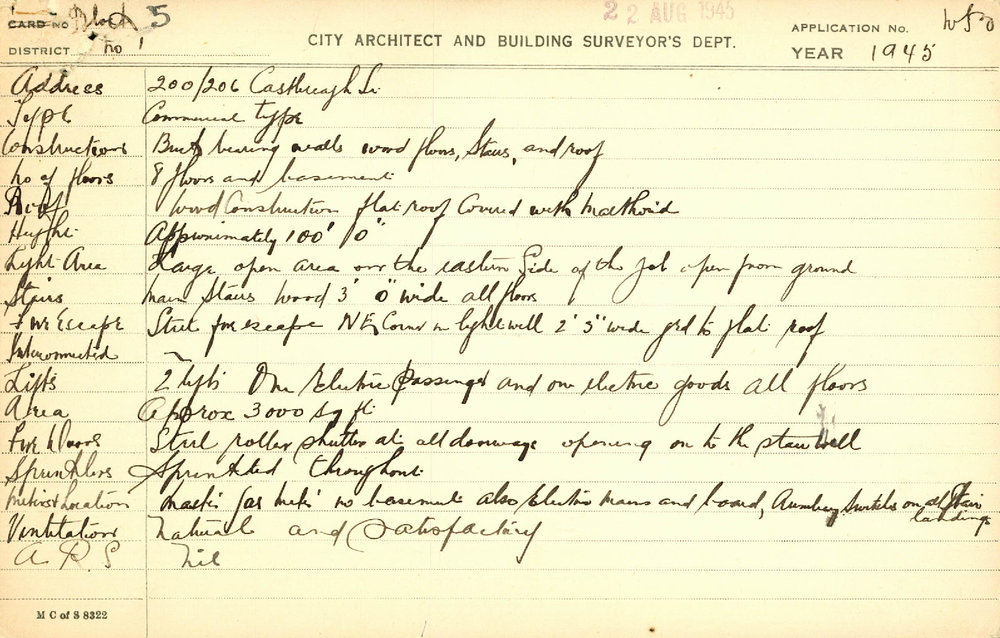 CARD NO Block 5
DISTRICT no 1
22 AUG 1945
CITY ARCHITECT AND BUILDING SURVEYOR'S DEPT.
APPLICATION No.
YEAR 1945
Address 200/206 Castlereagh St.
Type Commercial type
Constructions Brick bearing walls wood floors, Stairs, and roof
no of floors 8 floors and basement
Roof Wood Construction flat roof Covered with Malthoid
Height Approximately 100' 0"
Light Area Large open area on the eastern Side of the job open from ground
Stairs main Stairs wood 3' 0" wide all floors
Fire Escape Steel fire escape NE, Corner in lightwell 2' 3" wide grd to flat roof
Interconnected ~
Lifts 2 lifts One Electric Passenger and one electric goods all floors
Area Approx 3000 Sq ft
Fire Doors Steel roller shutter at all doorways opening on to the stair well
Sprinklers Sprinkled throughout
Meters Location Master Gas Meter in basement also Electric mains and board, Auxiliary Switches on all Stair
landings
Ventilation Natural and Satisfactory
A. P. S Nil
M C of S 8322